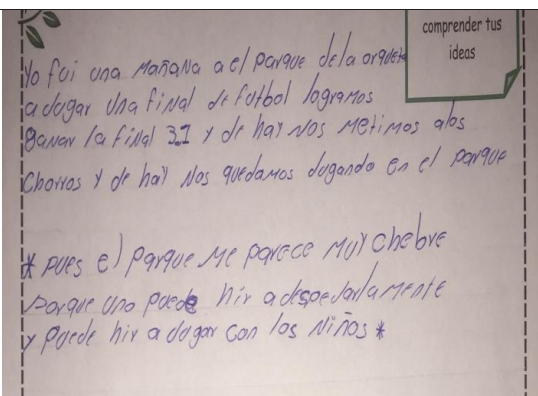 comprender tus
ideas
Yo fui una mañana a el parque de la orqueta
a dugar una final de futbol logramos
Ganar la final 3.1 y de hay nos metimos alos
Chorros y de hay nos quedamos dugando en el parque
* pues el parque me parece muy chebre
porque uno puede hir a despedarlamente
y puede hir a dugar con los niños *